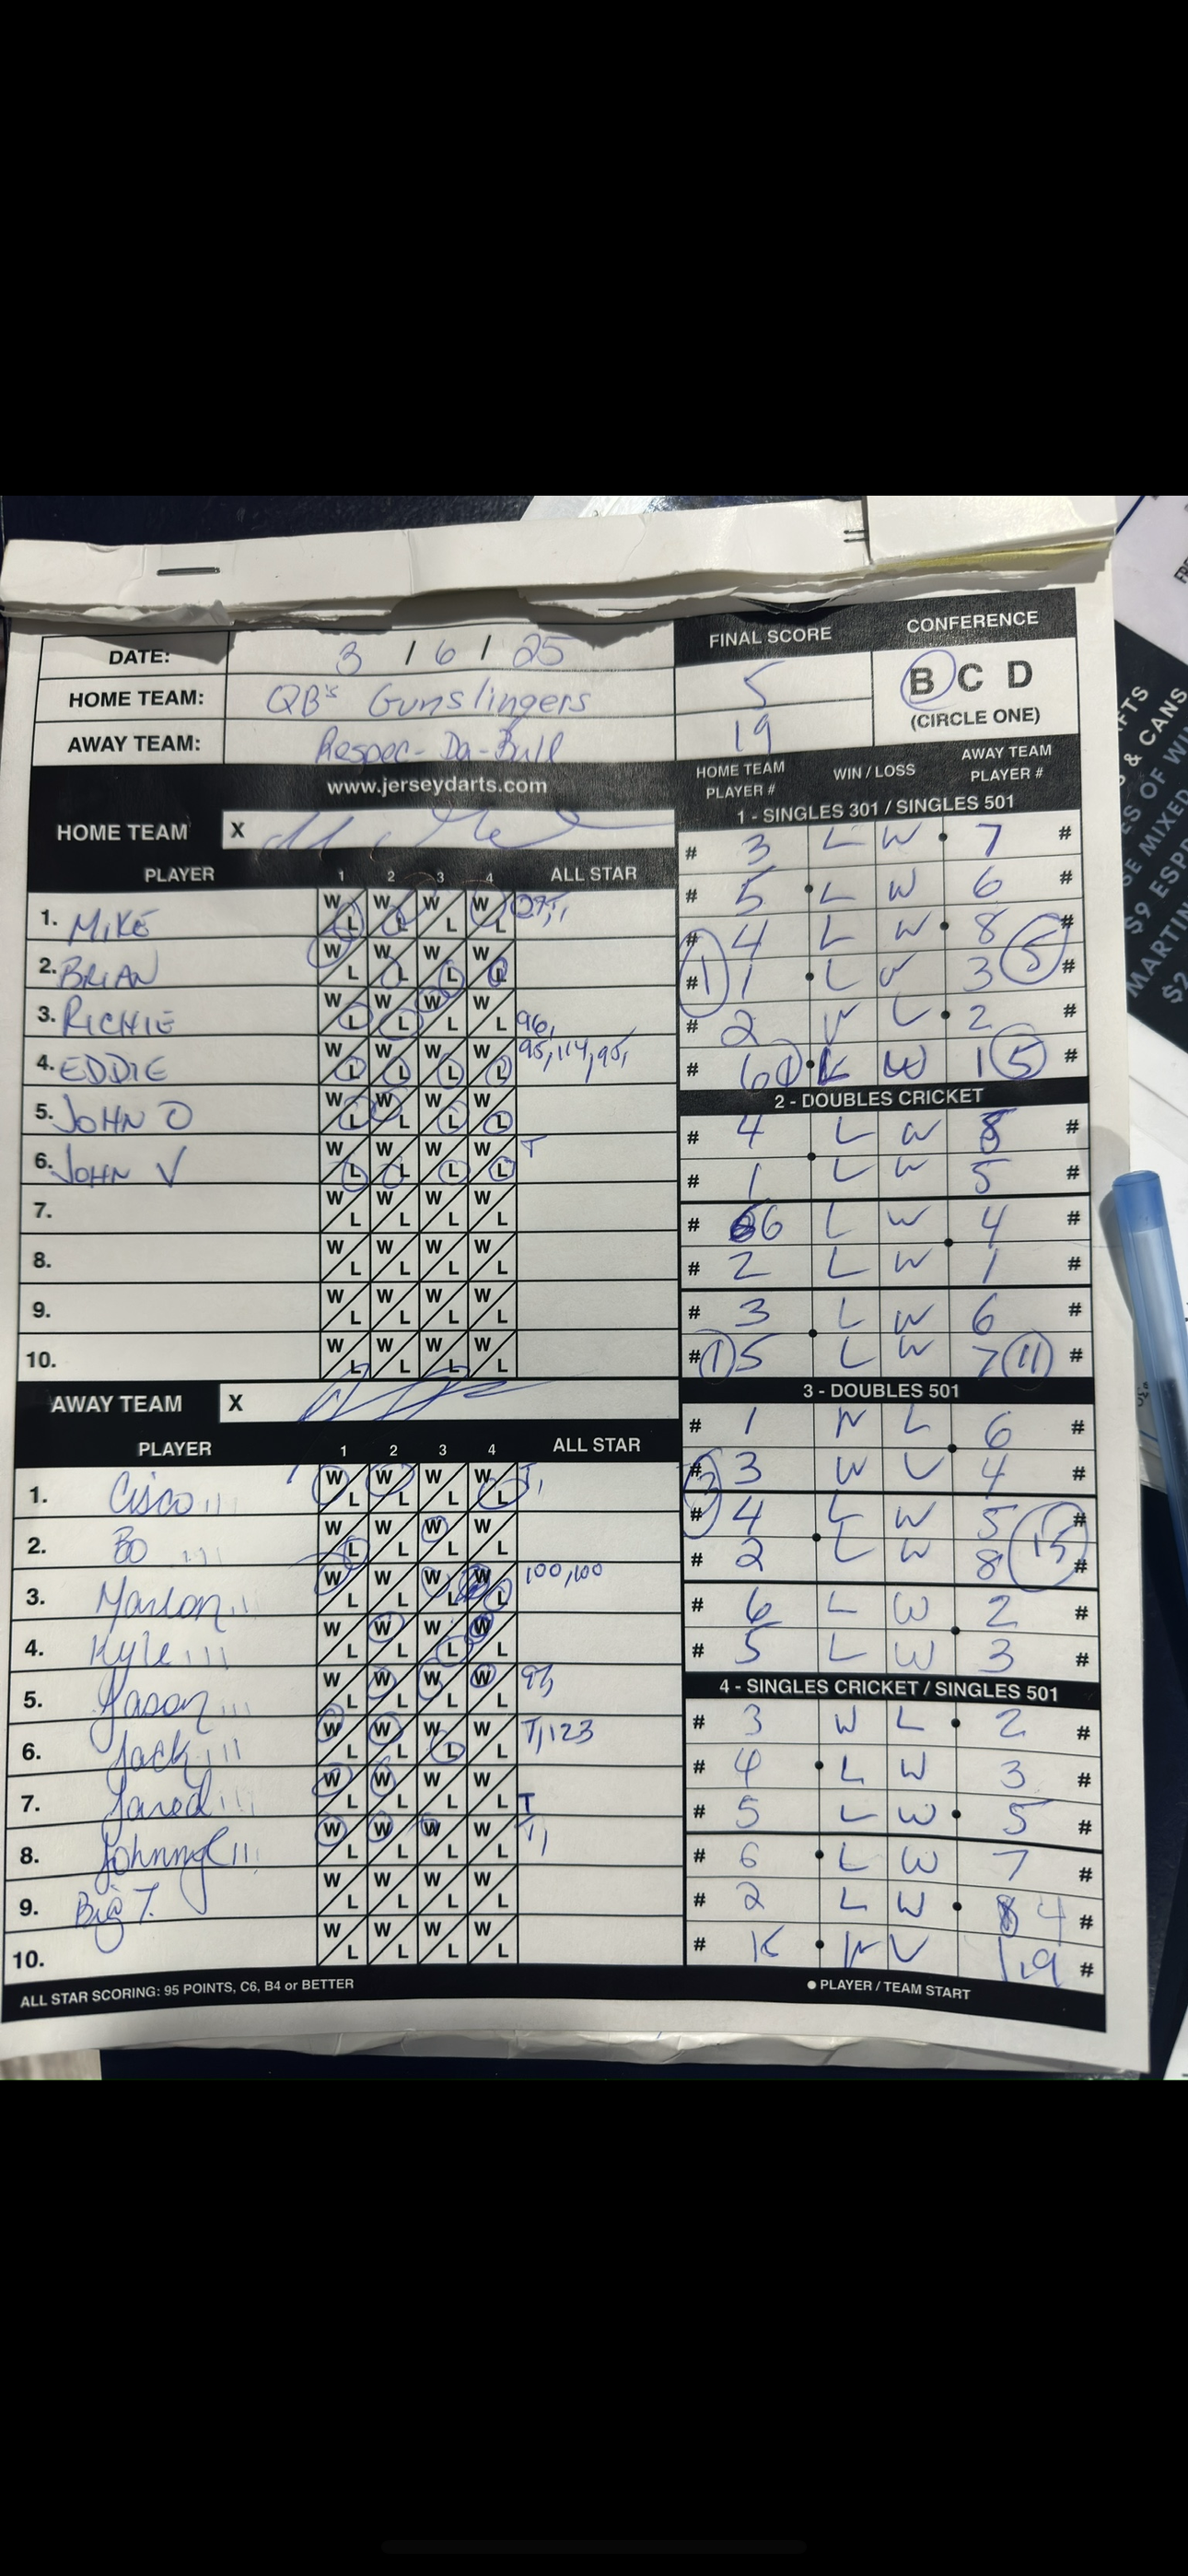 DATE: 3 / 6 / 25
HOME TEAM: QB's Gunslingers
AWAY TEAM: Respec-Da-Bull
FINAL SCORE
5
19
CONFERENCE
B C D
(CIRCLE ONE)
www.jerseydarts.com
HOME TEAM X
PLAYER 1 2 3 4 ALL STAR
1. MIKE W L W L W L W L
2. BRIAN W L W L W L W L
3. RICHIE W L W L W L W L 96,
4. EDDIE W L W L W L W L 95, 114, 95,
5. JOHN O W L W L W L W L
6. JOHN V W L W L W L W L T
7. W L W L W L W L
8. W L W L W L W L
9. W L W L W L W L
10. W L W L W L W L
AWAY TEAM X
PLAYER 1 2 3 4 ALL STAR
1. Cisco W L W L W L W L T,
2. Bo W L W L W L W L
3. Marlon W L W L W L W L 100, 100
4. Kyle W L W L W L W L
5. Jason W L W L W L W L
6. Jack W L W L W L W L T, 123
7. Jared W L W L W L W L T
8. Johnny W L W L W L W L T,
9. Big T. W L W L W L W L
10. W L W L W L W L
ALL STAR SCORING: 95 POINTS, C6, B4 or BETTER
HOME TEAM PLAYER # WIN / LOSS AWAY TEAM PLAYER #
1 - SINGLES 301 / SINGLES 501
# 3 L W 7 #
# 5 L W 6 #
# 4 L W 8 #
# 1 1 L W 3 5 #
# 2 W L 2 #
# 6 1 L W 1 5 #
2 - DOUBLES CRICKET
# 4 L W 8 #
# 1 L W 5 #
# 6 L W 4 #
# 2 L W 1 #
# 3 L W 6 #
# 1 5 L W 7 11 #
3 - DOUBLES 501
# 1 W L 6 #
# 3 3 W L 4 #
# 4 L W 5 #
# 2 L W 8 15 #
# 6 L W 2 #
# 5 L W 3 #
4 - SINGLES CRICKET / SINGLES 501
# 3 W L 2 #
# 4 L W 3 #
# 5 L W 5 #
# 6 L W 7 #
# 2 L W 4 #
# W L 1 19 #
PLAYER / TEAM START